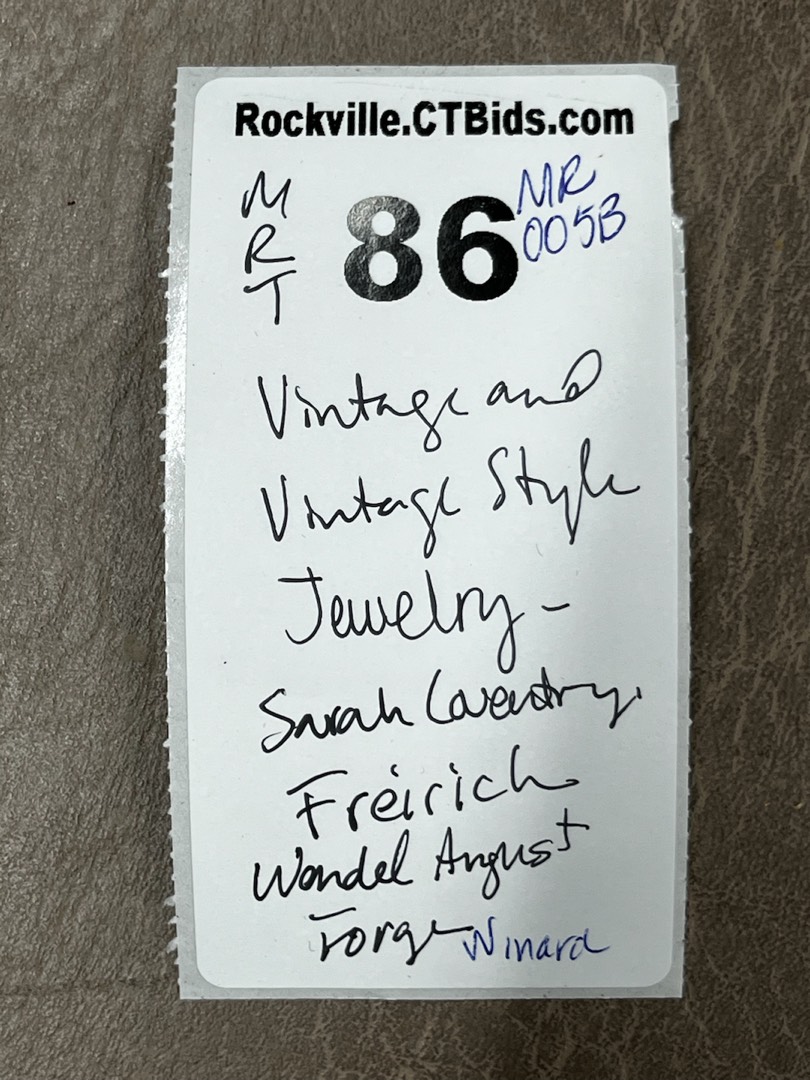 Rockville.CTBids.com
M
R
T
86
MR
005B
Vintage and
Vintage Style
Jewelry -
Sarah Coventry,
Freirich
Wendel August
Forge Ninard